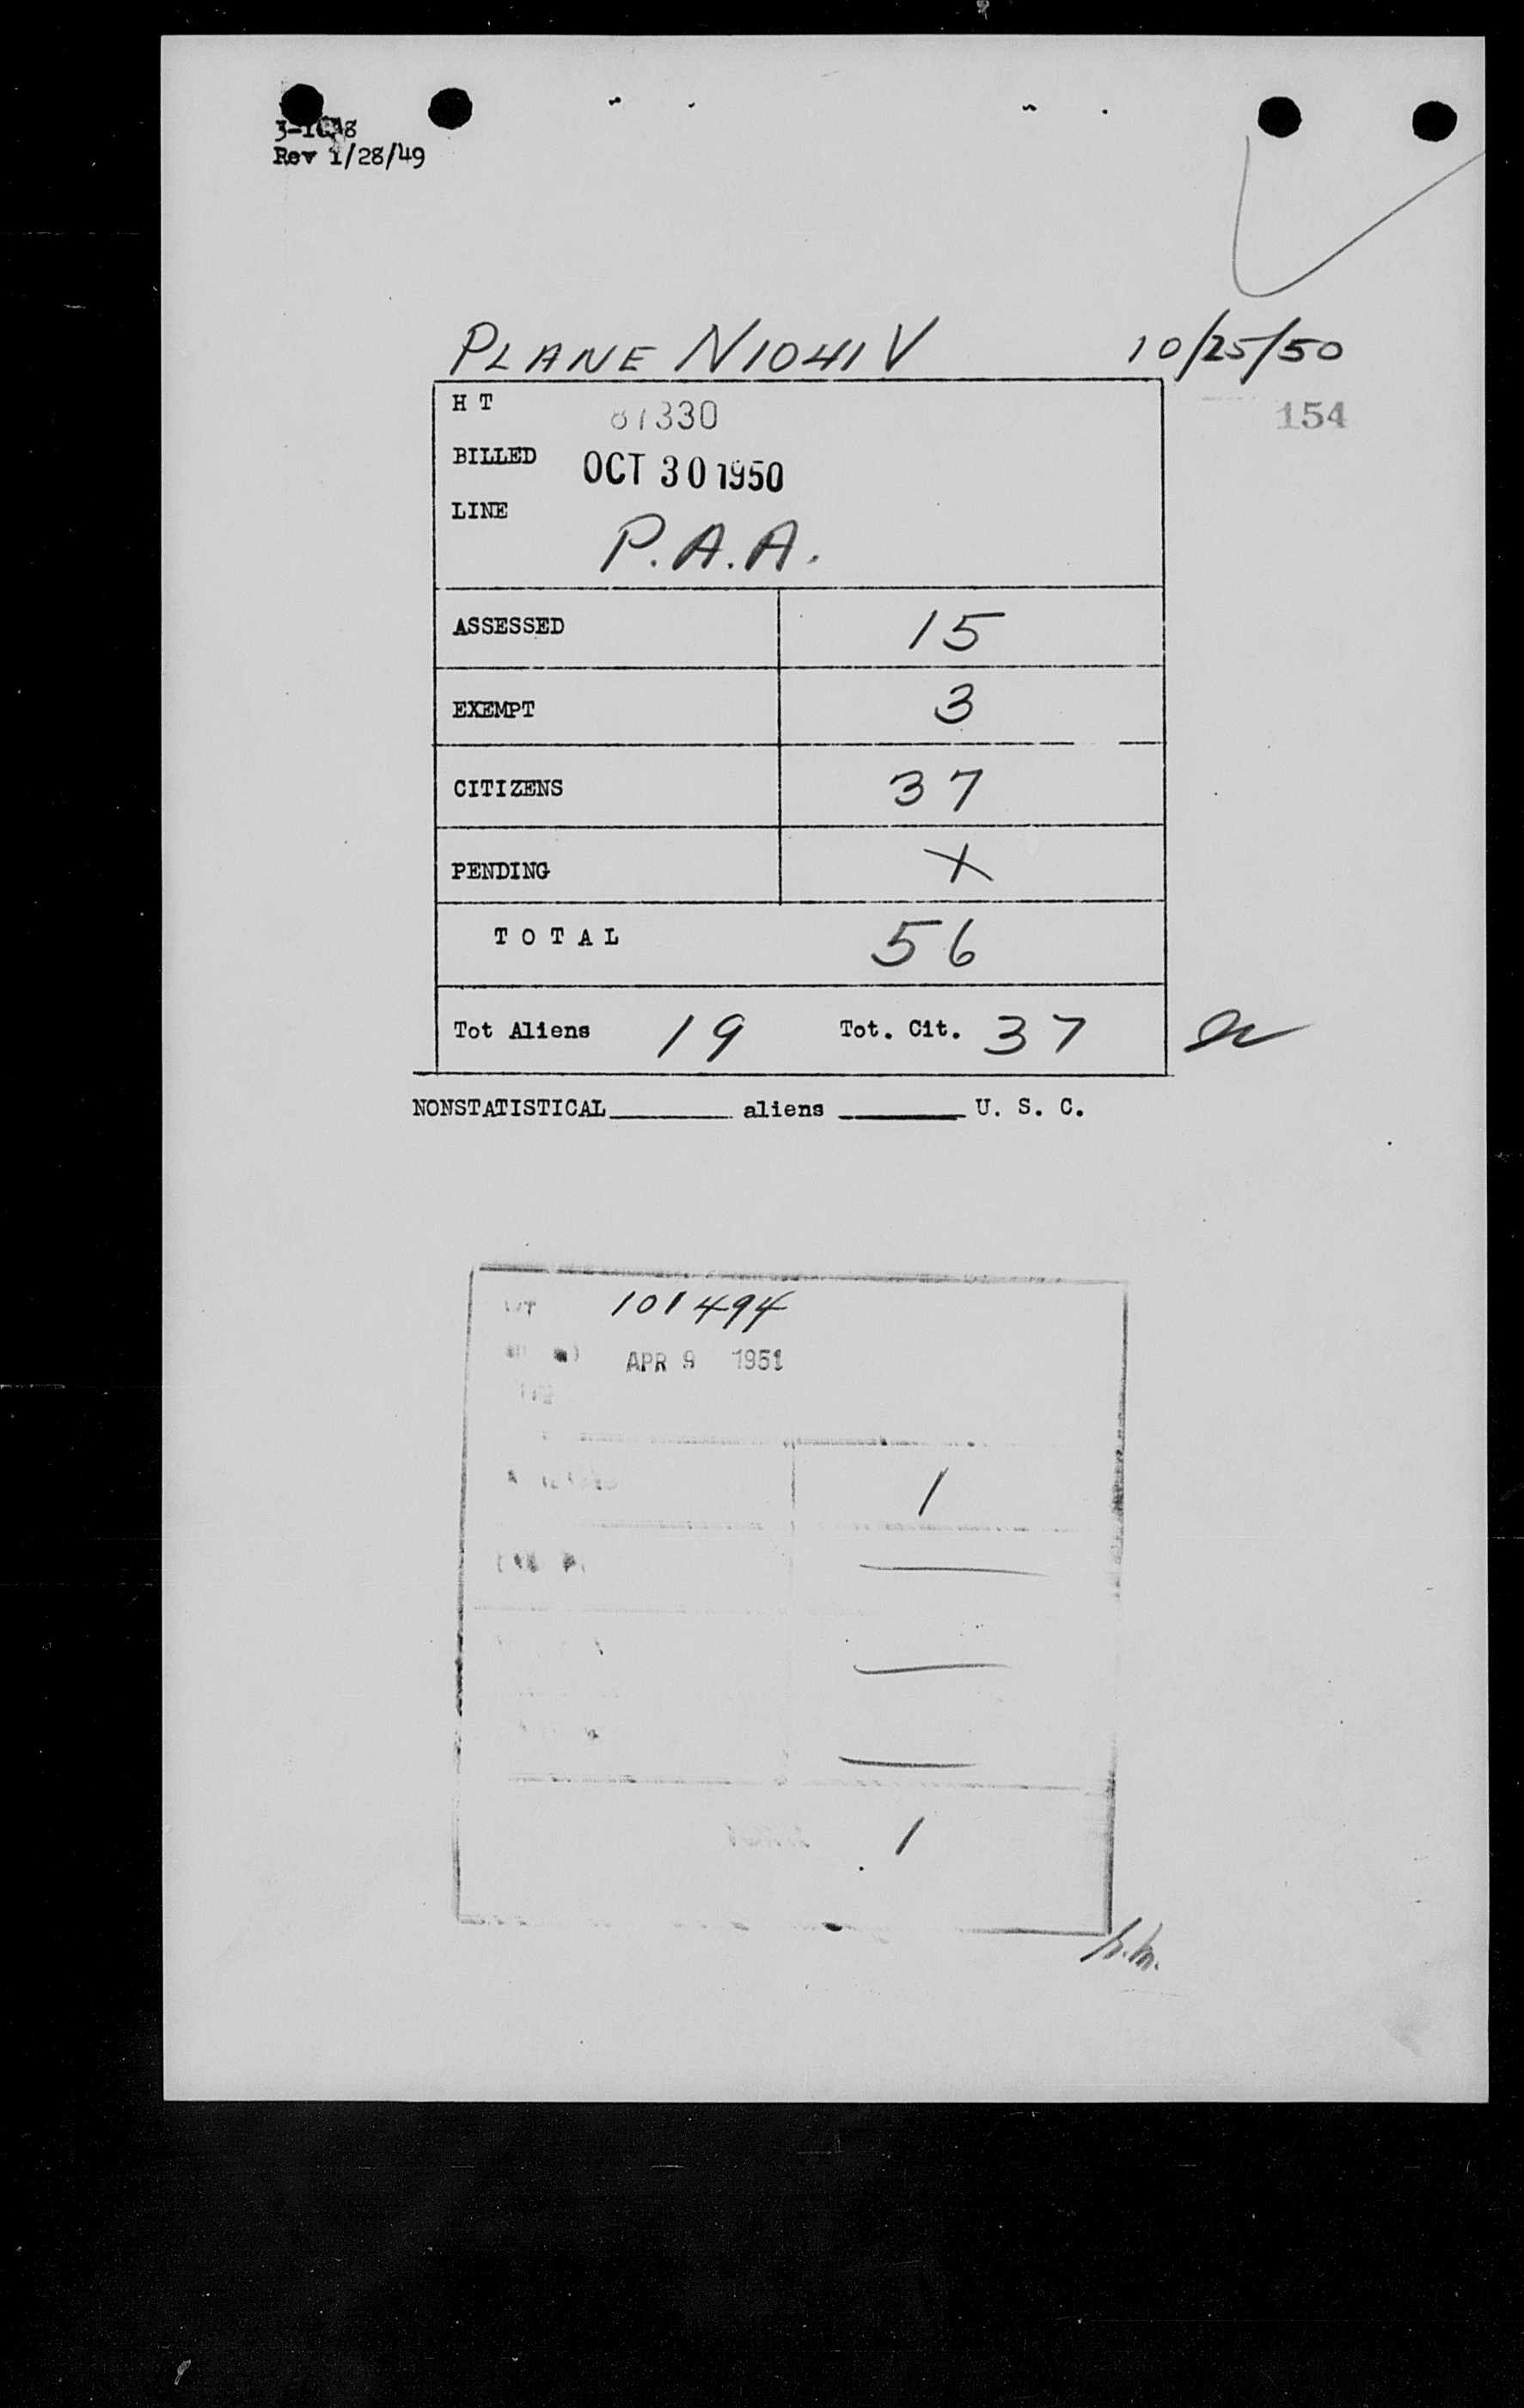 Rev 1/28/49
PLANE N1041V 10/25/50
H T 154
BILLED OCT 30 1950
LINE
P.A.A.
ASSESSED 15
EXEMPT 3
CITIZENS 37
PENDING X
TOTAL 56
Tot Aliens 19 Tot. Cit. 37
NONSTATISTICAL aliens U. S. C.
101494
APR 9 1951
1
1